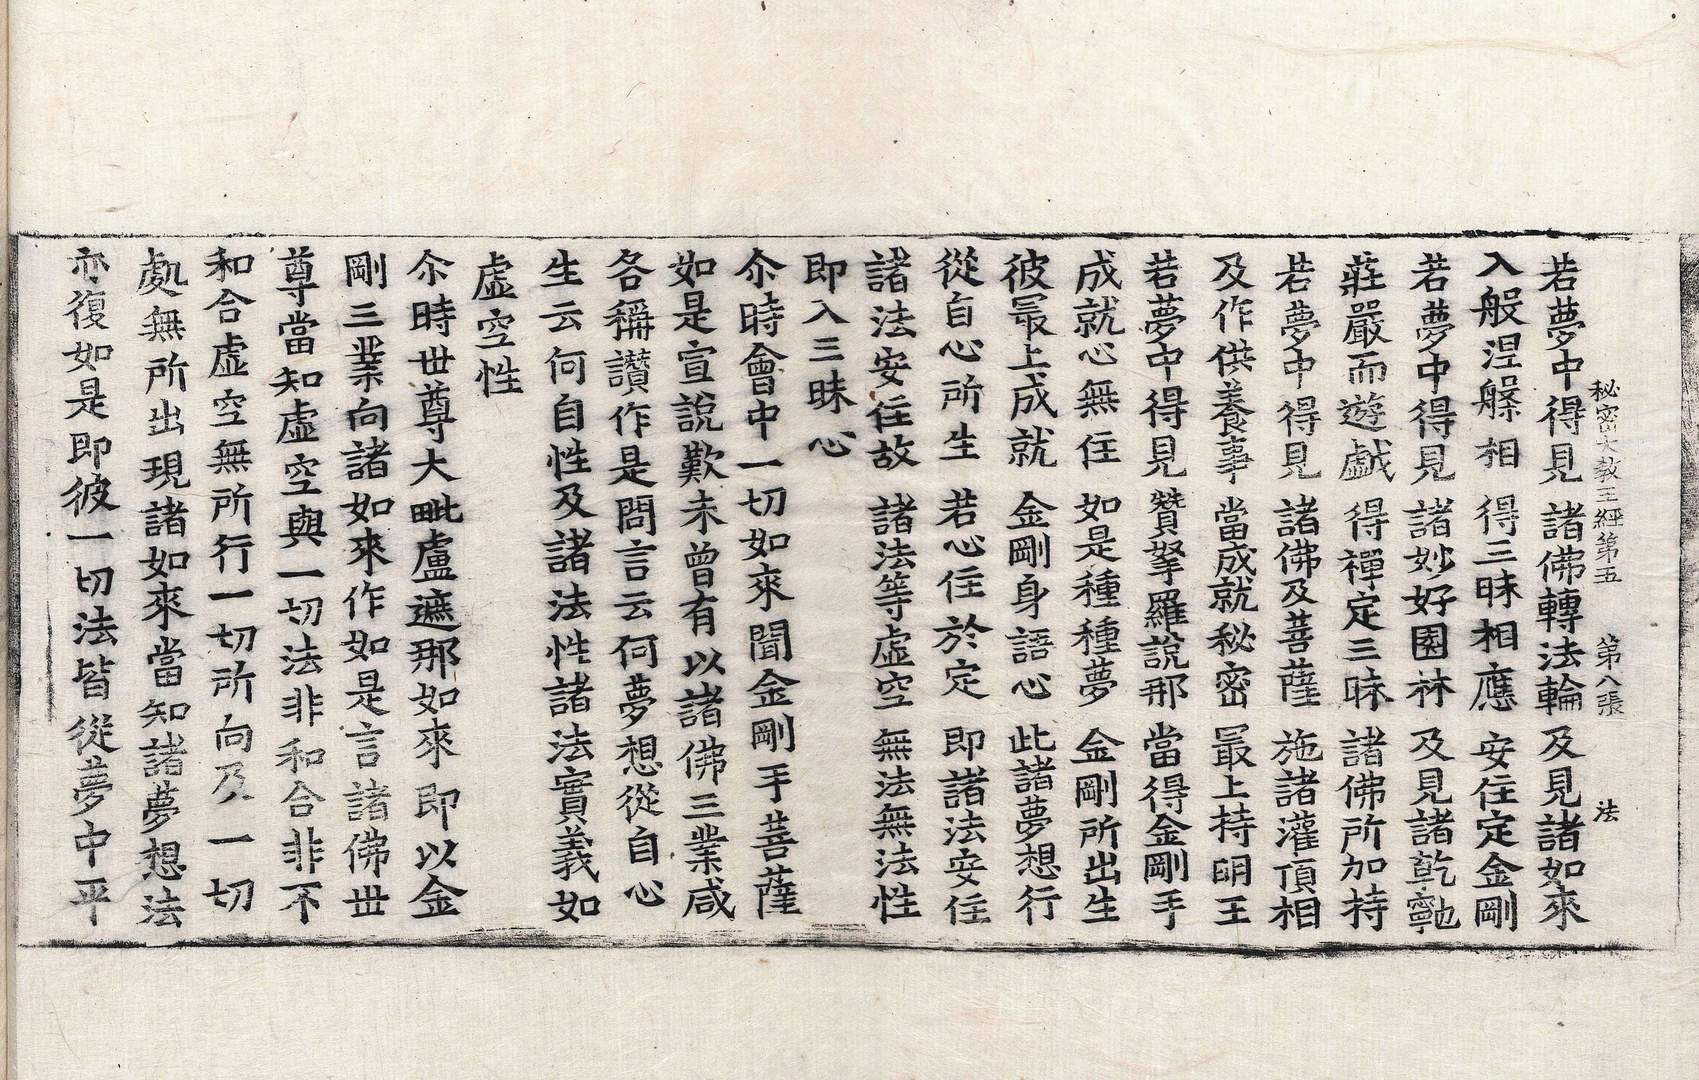 秘密大敎王經第五　第八張　法
若夢中得見　諸佛轉法輪　及見諸如來
入般涅槃相　得三昧相應　安住定金剛
若夢中得見　諸妙好園林　及見諸乾闥
莊嚴而遊戱　得禪定三昧　諸佛所加持
若夢中得見　諸佛及菩薩　施諸灌頂相
及作供養事　當成就秘密　最上持明王
若夢中得見　贊拏羅說那　當得金剛手
成就心無住　如是種種夢　金剛所出生
彼最上成就　金剛身語心　此諸夢想行
從自心所生　若心住於定　即諸法安住
諸法安住故　諸法等虛空　無法無法性
即入三昧心
尒時會中一切如來聞金剛手菩薩
如是宣說歎未曾有以諸佛三業咸
各稱讚作是問言云何夢想從自心
生云何自性及諸法性諸法實義如
虛空性
尒時世尊大毗盧遮那如來即以金
剛三業向諸如來作如是言諸佛世
尊當知虛空與一切法非和合非不
和合虛空無所行一切所向及一切
處無所出現諸如來當知諸夢想法
亦復如是即彼一切法皆從夢中平